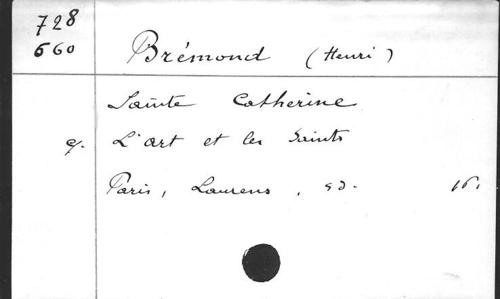 728
660
Brémond (Henri)
Sainte Catherine
c/. L'art et les Saints
Paris, Laurens, sd. 16.